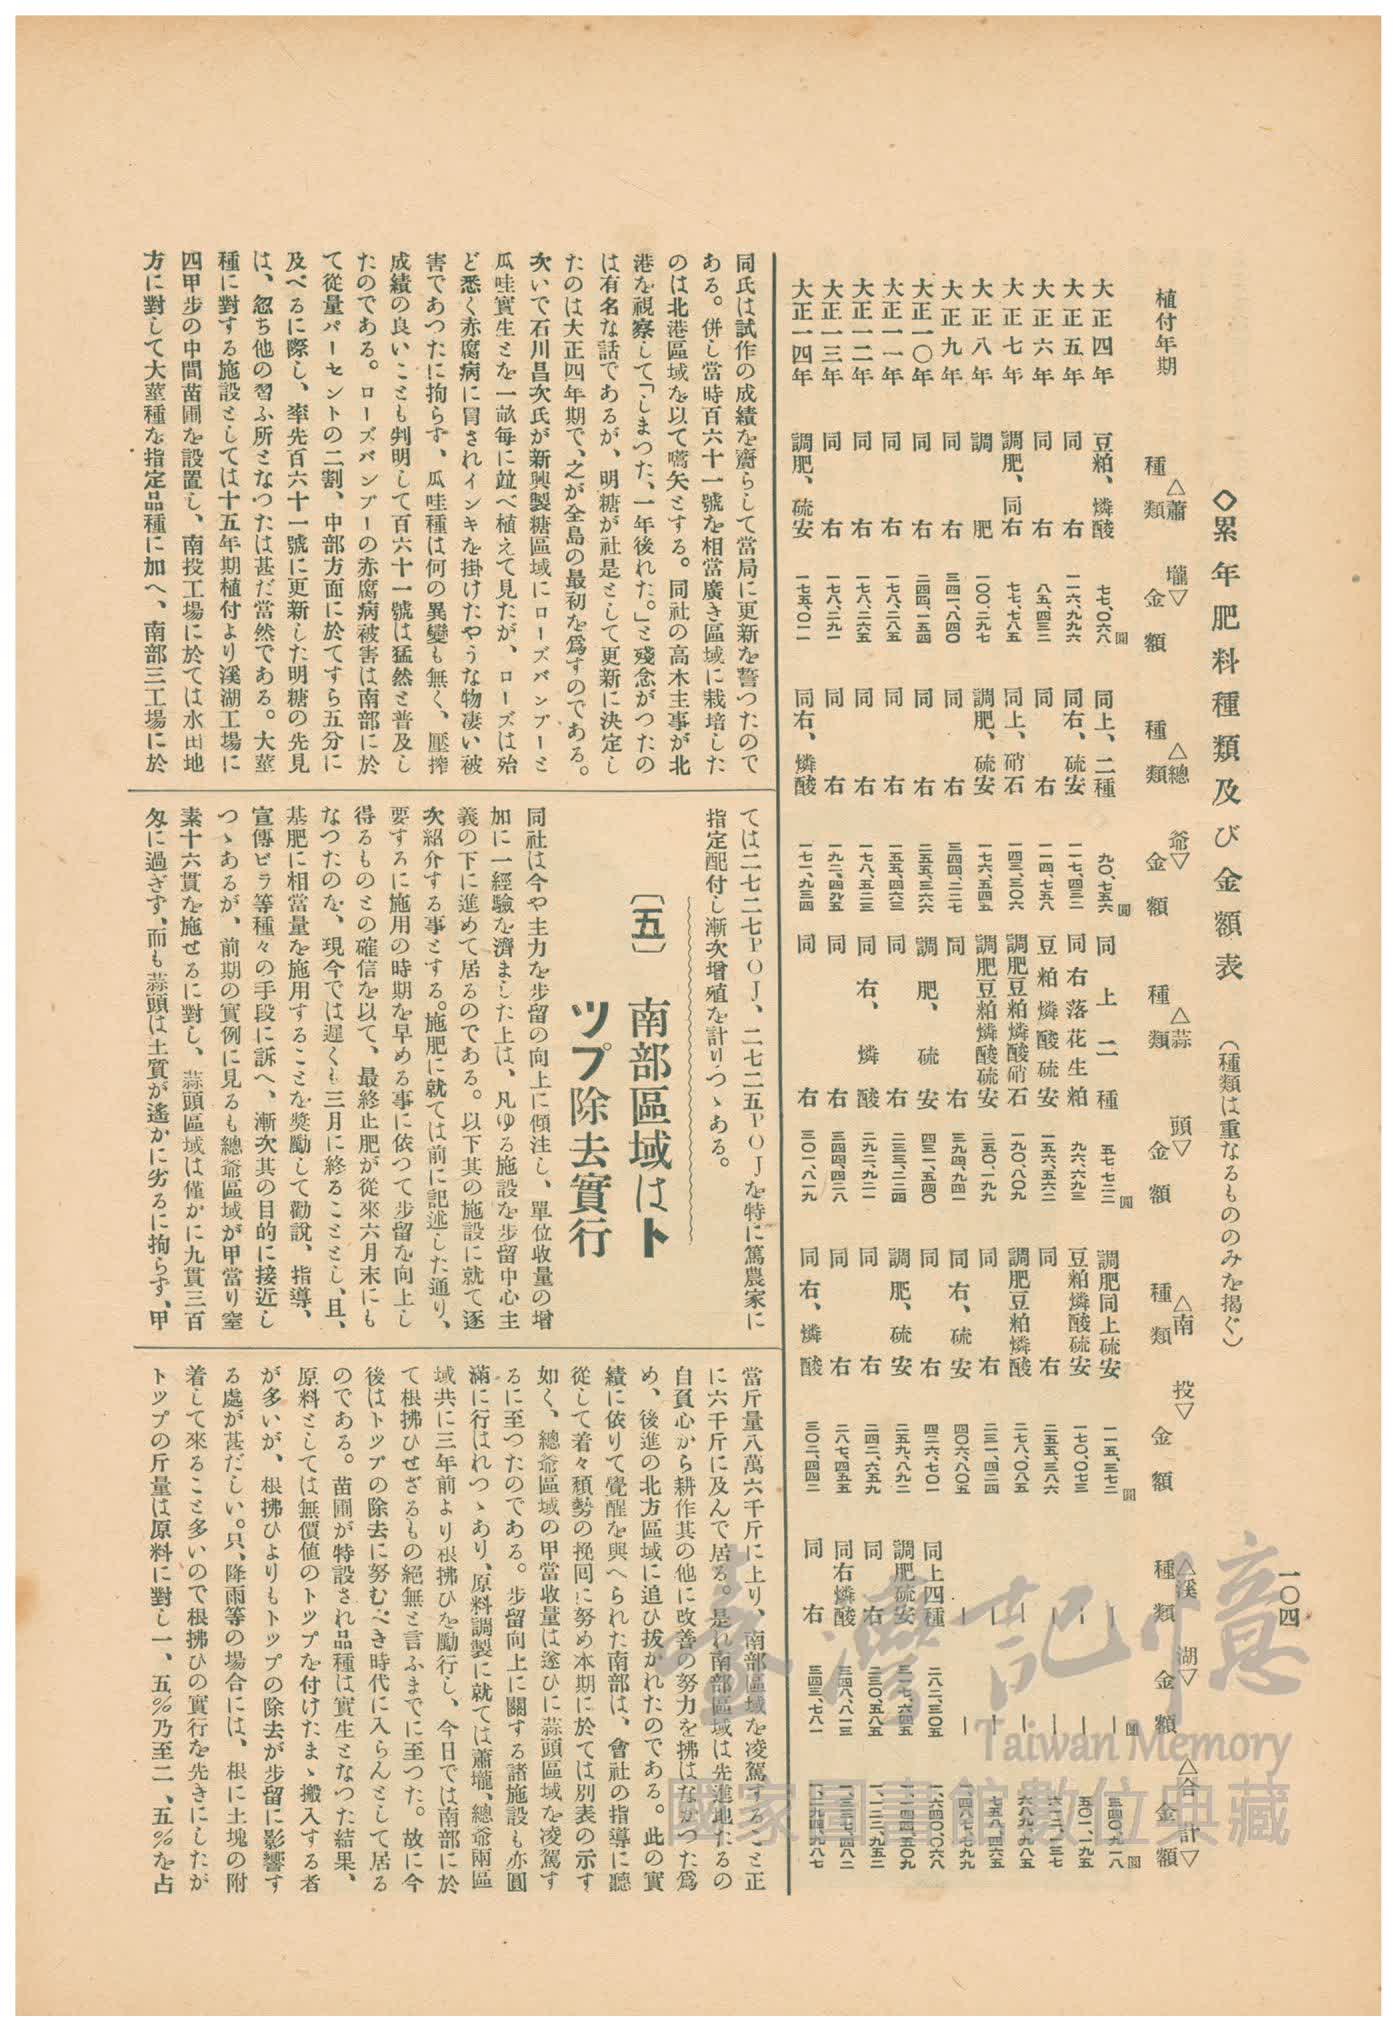 一〇四
◇累年肥料種類及び金額表 (種類は重なるもののみを揭ぐ)
植付年期 △蕭壠▽ 種類 金額 △總爺▽ 種類 金額 △蒜頭▽ 種類 金額 △南投▽ 種類 金額 △溪湖▽ 種類 金額 △合計▽ 金額
大正四年 豆粕、燐酸 七七、〇六八圓 同上、二種 九〇、七五六圓 同上二種 五七、七二二圓 調肥同上硫安 一一五、三七二圓 — —圓 三四〇、九一八圓
大正五年 同右 一一六、九九六 同右、硫安 一一七、四三二 同右落花生粕 九六、六九三 豆粕燐酸硫安 一七〇、〇七三 — — 五〇一、一九五
大正六年 同右 八五、四三二 同右 一一四、七五八 豆粕燐酸硫安 一五六、五六二 同右 二五五、三八六 — — 六一二、一三七
大正七年 調肥、同右 七七、七八五 同上、硝石 一四三、三〇六 調肥豆粕燐酸硝石 一九〇、八〇九 調肥豆粕燐酸 二七八、〇八五 — — 六八九、九八五
大正八年 調肥 一〇〇、二九七 調肥、硫安 一七六、五四五 調肥豆粕燐酸硫安 二五〇、一九九 同右 二三一、四二四 — — 七五八、四六五
大正九年 同右 三四一、八四〇 同右 三四四、二二七 同右 三九四、九四一 同右、硫安 四〇六、八〇五 — — 一、四八七、七九九
大正一〇年 同右 二四四、一五四 同右 二五五、三六六 調肥、硫安 四三一、五四〇 同右 四二六、七〇一 同上四種 二八二、三〇五 一、六四〇、〇六八
大正一一年 同右 一七八、二八五 同右 一五五、四六三 同右 二三三、二二四 調肥、硫安 二五九、八九二 調肥硫安 三一七、六四五 一、一四四、五〇九
大正一二年 同右 一七八、二六五 同右 一七八、五二三 同右、燐酸 二九二、九二一 同右 二四二、六五九 同右 二三〇、五八五 一、一二二、九五二
大正一三年 同右 一七八、二九一 同右 一九二、四九五 同右 三四四、四二八 同右 二八七、四五五 同右燐酸 三四八、八一三 一、三三七、四八二
大正一四年 調肥、硫安 一七五、〇一一 同右、燐酸 一七一、九三四 同右 三〇一、八一九 同右、燐酸 三〇二、四四二 同右 三四三、七八一 一、二九四、九八七
同氏は試作の成績を齎らして當局に更新を誓つたので
ある。併し當時百六十一號を相當廣き區域に栽培した
のは北港區域を以て嚆矢とする。同社の高木主事が北
港を視察して「しまつた、一年後れた。」と殘念がつたの
は有名な話であるが、明糖が社是として更新に決定し
たのは大正四年期で、之が全島の最初を爲すのである。
次いで石川昌次氏が新興製糖區域にローズバンブーと
瓜哇實生とを一畝每に竝べ植えて見たが、ローズは殆
ど悉く赤腐病に冒されインキを掛けたやうな物凄い被
害であつたに拘らず、瓜哇種は何の異變も無く、壓搾
成績の良いことも判明して百六十一號は猛然と普及し
たのである。ローズバンブーの赤腐病被害は南部に於
て從量パーセントの二割、中部方面に於てすら五分に
及べるに際し、率先百六十一號に更新した明糖の先見
は、忽ち他の習ふ所となつたは甚だ當然である。大莖
種に對する施設としては十五年期植付より溪湖工場に
四甲步の中間苗圃を設置し、南投工場に於ては水田地
方に對して大莖種を指定品種に加へ、南部三工場に於
ては二七二七POJ、二七二五POJを特に篤農家に
指定配付し漸次增殖を計りつゝある。
〔五〕 南部區域はト
ツプ除去實行
同社は今や主力を步留の向上に傾注し、單位收量の增
加に一經驗を濟ました上は、凡ゆる施設を步留中心主
義の下に進めて居るのである。以下其の施設に就て逐
次紹介する事とする。施肥に就ては前に記述した通り、
要するに施用の時期を早める事に依つて步留を向上し
得るものとの確信を以て、最終止肥が從來六月末にも
なつたのを、現今では遲くも三月に終ることとし、且、
基肥に相當量を施用することを奬勵して勸說、指導、
宣傳ビラ等種々の手段に訴へ、漸次其の目的に接近し
つゝあるが、前期の實例に見るも總爺區域が甲當り窒
素十六貫を施せるに對し、蒜頭區域は僅かに九貫三百
匁に過ぎず、而も蒜頭は土質が遙かに劣るに拘らず、甲
當斤量八萬六千斤に上り、南部區域を凌駕すること正
に六千斤に及んで居る。是れ南部區域は先進地たるの
自負心から耕作其の他に改善の努力を拂はなかつた爲
め、後進の北方區域に追ひ拔かれたのである。此の實
績に依りて覺醒を與へられた南部は、會社の指導に聽
從して着々頽勢の挽回に努め本期に於ては別表の示す
如く、總爺區域の甲當收量は遂ひに蒜頭區域を凌駕す
るに至つたのである。步留向上に關する諸施設も亦圓
滿に行はれつゝあり、原料調製に就ては蕭壠、總爺兩區
域共に三年前より根拂ひを勵行し、今日では南部に於
て根拂ひせざるもの絕無と言ふまでに至つた。故に今
後はトツプの除去に努むべき時代に入らんとして居る
のである。苗圃が特設され品種は實生となつた結果、
原料としては無價値のトツプを付けたまゝ搬入する者
が多いが、根拂ひよりもトツプの除去が步留に影響す
る處が甚だしい。只、降雨等の場合には、根に土塊の附
着して來ること多いので根拂ひの實行を先きにしたが
トツプの斤量は原料に對し一、五%乃至二、五%を占
臺灣記憶
Taiwan Memory
國家圖書館數位典藏